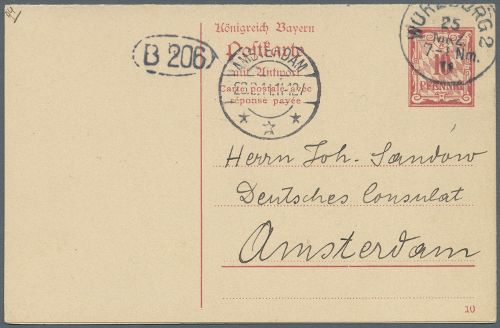 44
B 206
Königreich Bayern
Postkarte
mit Antwort
Carte postale avec
réponse payée
AMSTERDAM
WÜRZBURG 2
25
7-8 Nm.
11
10
PFENNIG
Herrn Joh. Sandow
Deutsches Consulat
Amsterdam
10